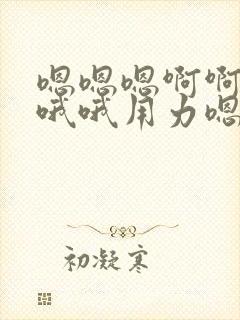 嗯嗯嗯啊啊
哦哦用力嗯
初凝寒